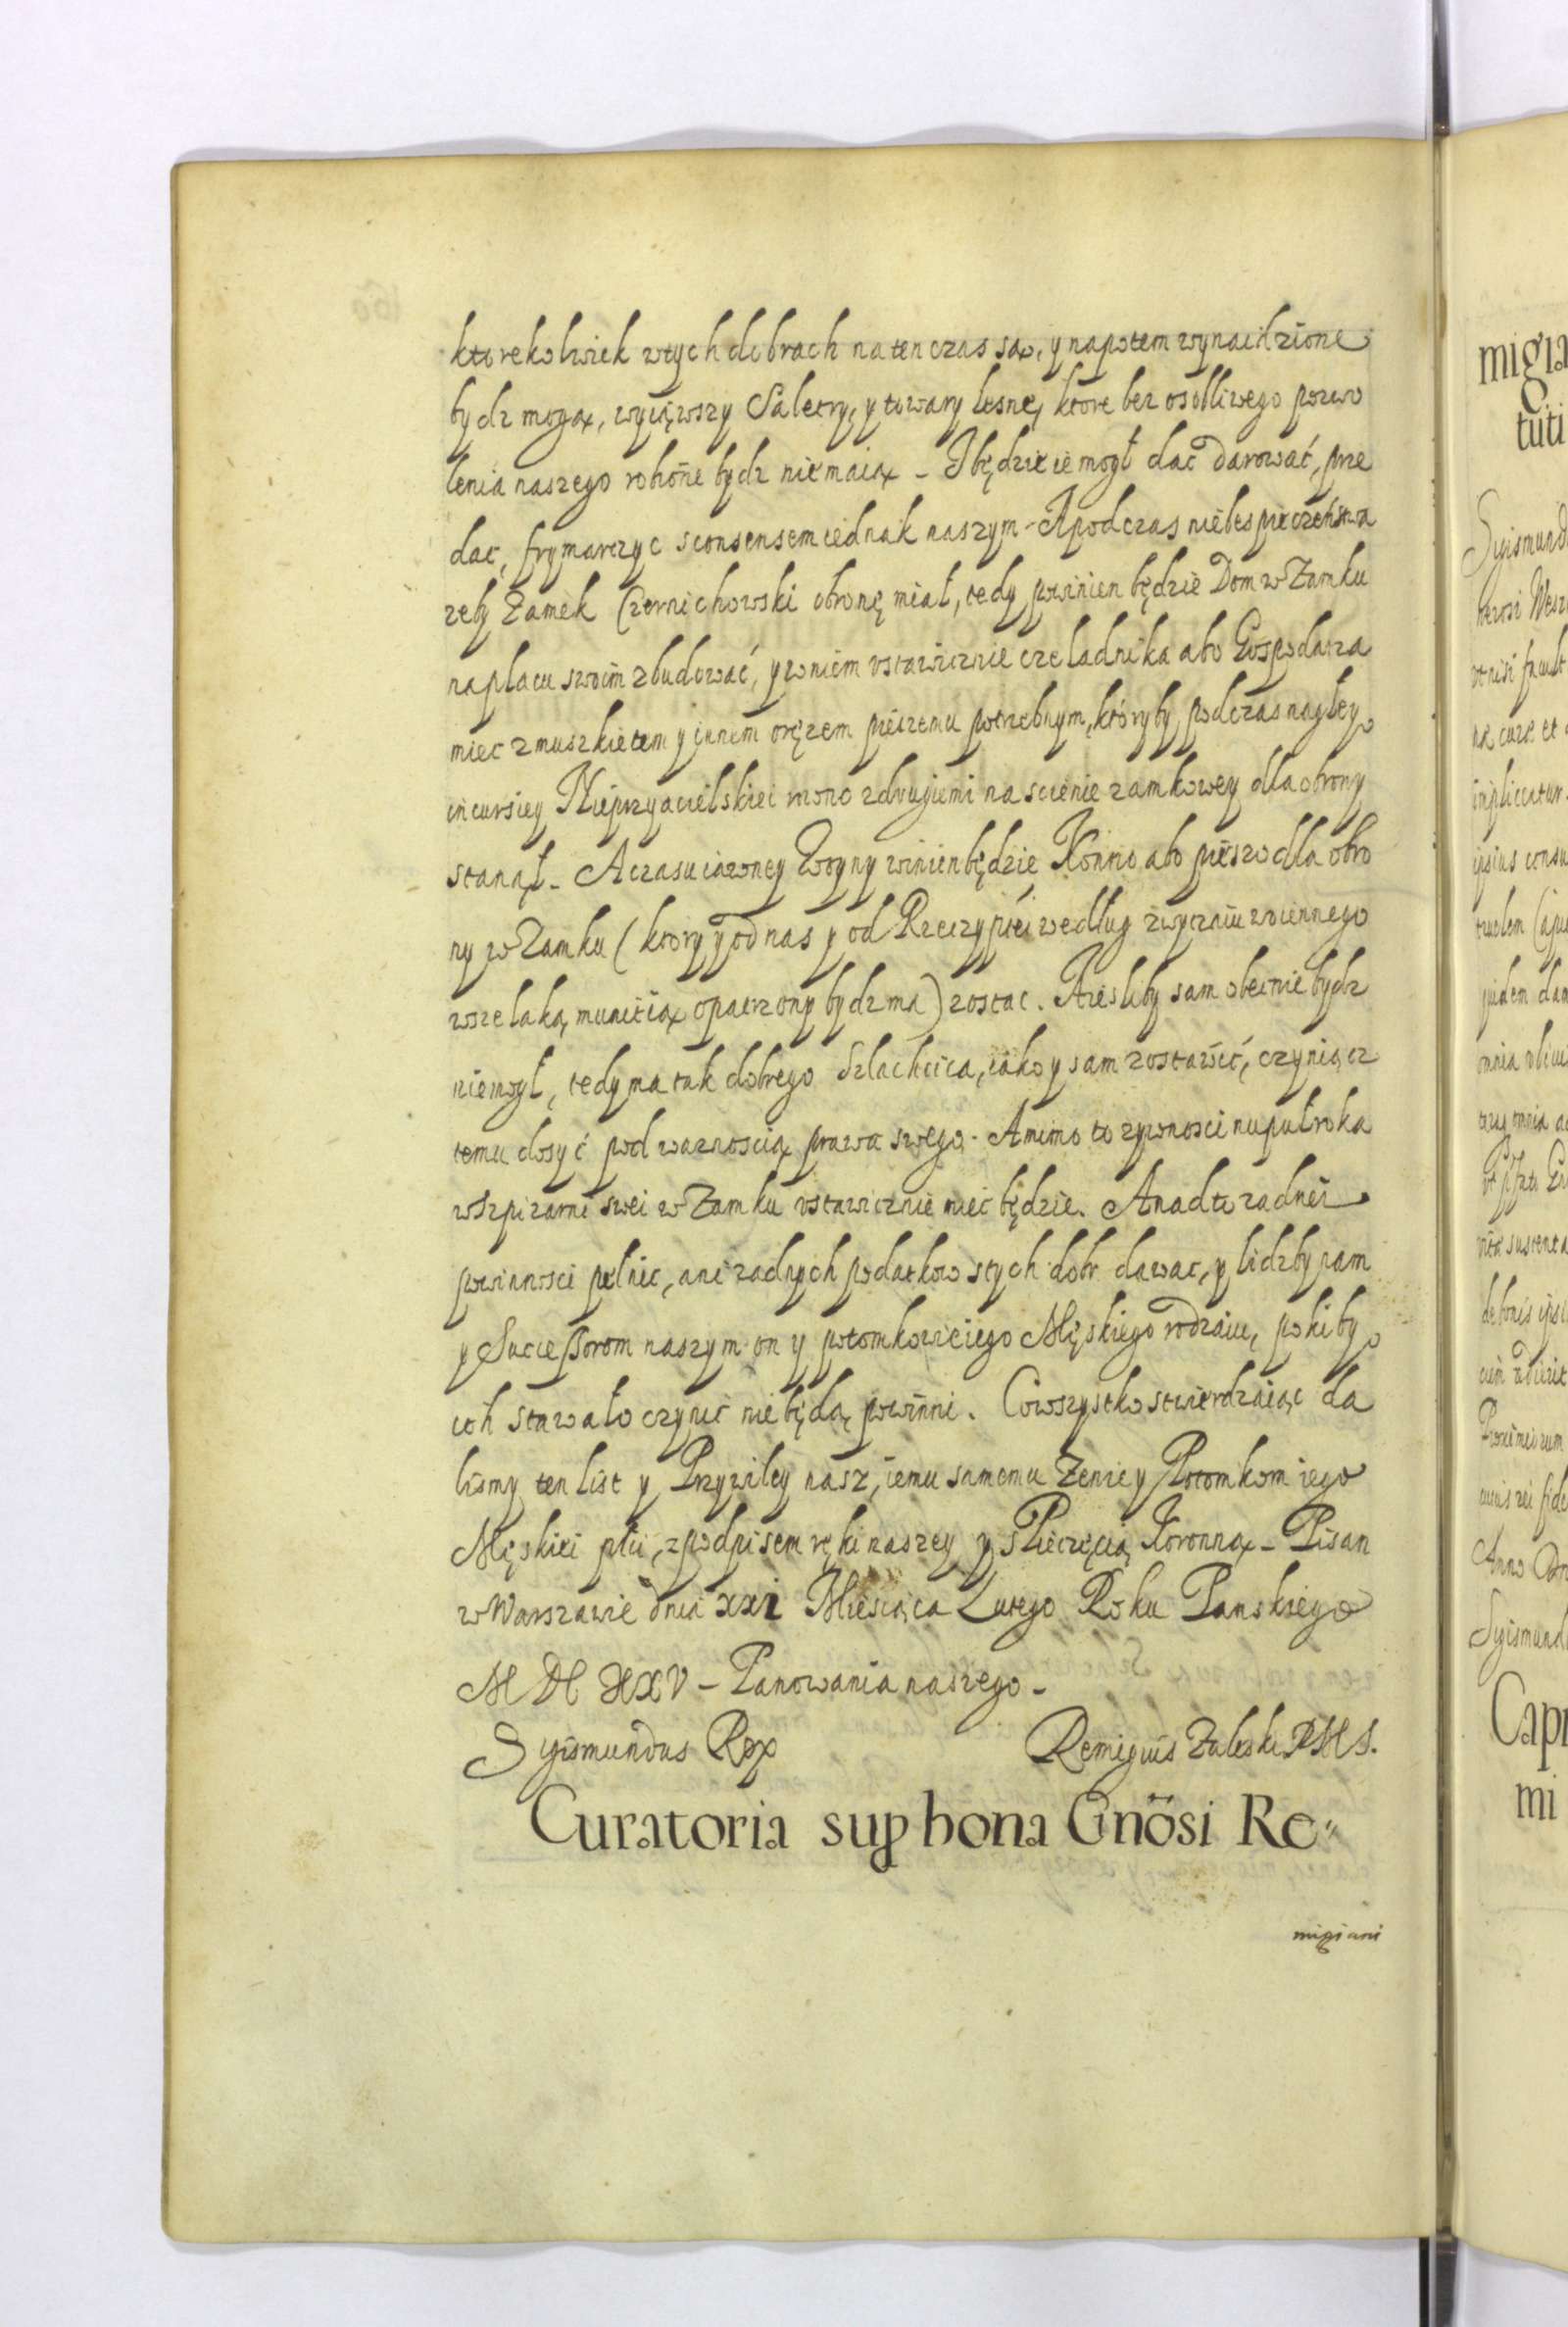 ktorekolwiek wtych dobrach natenczas są, y napotem wynaidzione
bydz mogą, wyiąwszy Saletry, y towary lesne, ktore bez osobliwego pozwo
lenia naszego robione bydz niemaią - I będzie ie mogł dać darować, prze
dac, frymarczyc sconsensem iednak naszym - A podczas niebespieczeństwa
zeby Zamek Czernichowski obronę miał, tedy powinien będzie Dom w Zamku
naplacu swoim zbudować, y wniem ustawicznie czeladnika abo Gospodarza
miec zmuszkietem y innem oręzem pieszemu potrzebnym, któryby podczas nagłey
incursiey Nieprzyacielskiei rowno zdrugiemi na scienie zamkowey dla obrony
stanął - A czasu iawney Woyny winien będzie Konno abo pieszo dla obro
ny w Zamku (ktory y od nas y od Rzeczyptei według zwyczaiu woiennego
wszelaką municią opatrzony bydz ma) zostac. A iesliby sam obecnie bydz
niemogł, tedy ma tak dobrego Szlachcica, iako y sam zostawić, czyniącz
temu dosyć pod waznoscią prawa swego. A mimo to zywnosci na puł roka
wszpizarni swei w Zamku ustawicznie mieć będzie. A nadto zadnei
powinnosci pełnic, ani zadnych podatkow stych dobr dawac, y liczby nam
y Sucessorom naszym on y potomkowie iego Męskiego rodzaiu, pokiby
ich stawało czynić nie będą powinni. Co wszystko stwierdzaiąc da
lismy ten list y Przywiley nasz, iemu samemu Zenie y Potomkom iego
Męskiei płci, zpodpisem ręki naszey y s Pieczęcią Koronną - Pisan
w Warszawie dnia XXI Miesiąca Lutego Roku Panskiego
M DC XXV - Panowania naszego -
Sigismundus Rex Remigius Zaleski RMS.
Curatoria sup bona Gnosi Re"
migiani
migia
tuti
Capi
mi